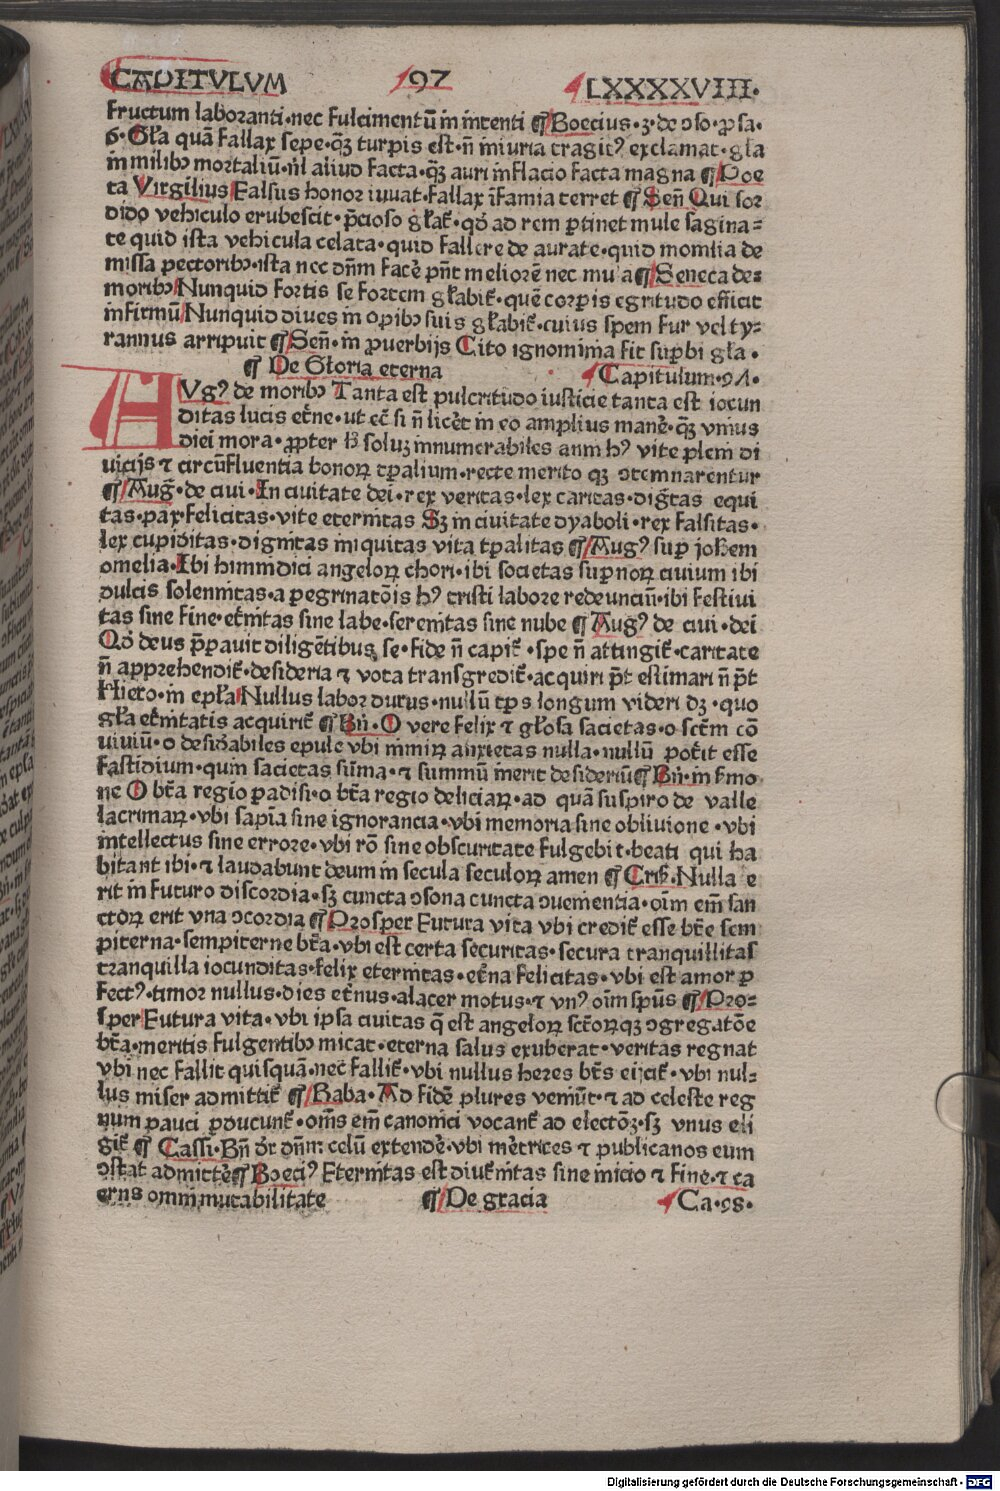 CAPITVLVM 97 LXXXXVIII.
fructum laboranti.nec fulcimentū in nitenti ¶ Boecius.3.de ɔso.ꝓsa.
6.Gła quā fallax sepe.qȝ turpis est.n̄ iniuria tragicꝰ exclamat.gła
in milibꝫ mortaliū.nīl aliud facta.qȝ auri inflacio facta magna ¶ Poe
ta Virgilius Falsus honor iuuat.fallax īfamia terret ¶ Sen̄ Qui sor
dido vehiculo erubescit.p̄cioso głat̄.qđ ad rem ꝑtinet mule sagina⸗
te quid ista vehicula celata.quid fallere de aurate.quid monilia de
missa pectoribꝫ.ista nec dn̄m facē pn̄t meliorē nec mula ¶ Seneca de⸗
moribꝫ Nunquid fortis se fortem głabit̄.quē corꝑis egritudo efficit
infirmū Nunquid diues in opibꝫ suis głabit̄.cuius spem fur vel ty⸗
rannus arripuit ¶ Sen̄.in ꝓuerbijs Cito ignominia fit suꝑbi gła.
¶ De Gloria eterna Capitulum.97.
AVgꝰ de moribꝫ Tanta est pulcritudo iusticie tanta est iocun
ditas lucis et̄ne.ut et̄ si n̄ licēt in eo amplius manē.qȝ vnius
diei mora.ꝓpter h̄ soluȝ innumerabiles anni hꝰ vite pleni di
uicijs ⁊ circūfluentia bonoꝝ tꝑalium.recte merito qȝ ɔtemnarentur
¶ Auḡ.de ciui.In ciuitate dei.rex veritas.lex caritas.diḡtas equi
tas.pax.felicitas.vite eternitas Sȝ in ciuitate dyaboli.rex falsitas.
lex cupiditas.dignitas iniquitas vita tꝑalitas ¶ Augꝰ suꝑ joħem
omelia.Ibi himmdici angeloꝝ chori.ibi societas suꝑnoꝝ ciuium ibi
dulcis solennitas.a peregrinatōis hꝰ tristi labore redeunciū.ibi festiui
tas sine fine.et̄nitas sine labe.serenitas sine nube ¶ Augꝰ de ciui.dei
Qđ deus p̄parauit diligētibus se.fide n̄ capit̄.spe n̄ attingit̄.caritate
n̄ apprehendit̄.desideria ⁊ vota transgredit̄.acquiri p̄t estimari n̄ p̄t
Hiero.in epła Nullus labor durus.nullū tꝑs longum videri dȝ.quo
gła et̄nitatis acquirit̄ ¶ Bn̄.O vere felix ⁊ głosa sacietas.o sctm̄ cō
uiuiū.o desid̄abiles epule vbi nimiꝝ anxietas nulla.nullū pot̄it esse
fastidium.quin sacietas sūma.⁊ summū inerit desideriū ¶ Bn̄.in s̄mo
ne O bt̄a regio padisi.o bt̄a regio deliciaꝝ.ad quā suspiro de valle
lacrimaꝝ.vbi sapīa sine ignorancia.vbi memoria sine obliuione.vbi
intellectus sine errore.vbi rō sine obscuritate fulgebit.beati qui ha
bitant ibi.⁊ laudabunt deum in secula seculoꝝ amen ¶ Cris̄.Nulla e
rit in futuro discordia.sȝ cuncta ɔsona cuncta ɔuenientia.oīm em̄ san
ctoꝝ erit vna ɔcordia ¶ Prosper Futura vita vbi credit̄ esse bt̄e sem
piterna.sempiterne bt̄a.vbi est certa securitas.secura tranquillitas
tranquilla iocunditas.felix eternitas.et̄na felicitas.vbi est amor ꝑ
fectꝰ.timor nullus.dies et̄nus.alacer motus.⁊ vnꝰ oīm spūs ¶ Pro⸗
sper Futura vita.vbi ipsa ciuitas q̄ est angeloꝝ sct̄oꝝqȝ ɔgregatōe
bt̄a.meritis fulgentibꝫ micat.eterna salus exuberat.veritas regnat
vbi nec fallit quisquā.nec fallit̄.vbi nullus heres bt̄s eijcit̄.vbi nul⸗
lus miser admittit̄ ¶ Raba.Ad fidē plures veniūt.⁊ ad celeste reg
num pauci ꝓducunt̄.om̄s em̄ canonici vocant̄ ad electōȝ.sȝ vnus eli
git̄ ¶ Cassi.Bn̄ dr̄ dn̄m celū extendē.vbi mēretrices ⁊ publicanos eum
ɔstat admittē ¶ Boeciꝰ Eternitas est diuit̄nitas sine inicio ⁊ fine.⁊ ca
erns omni mutabilitate ¶ De gracia Ca.98.
Digitalisierung gefördert durch die Deutsche Forschungsgemeinschaft - DFG